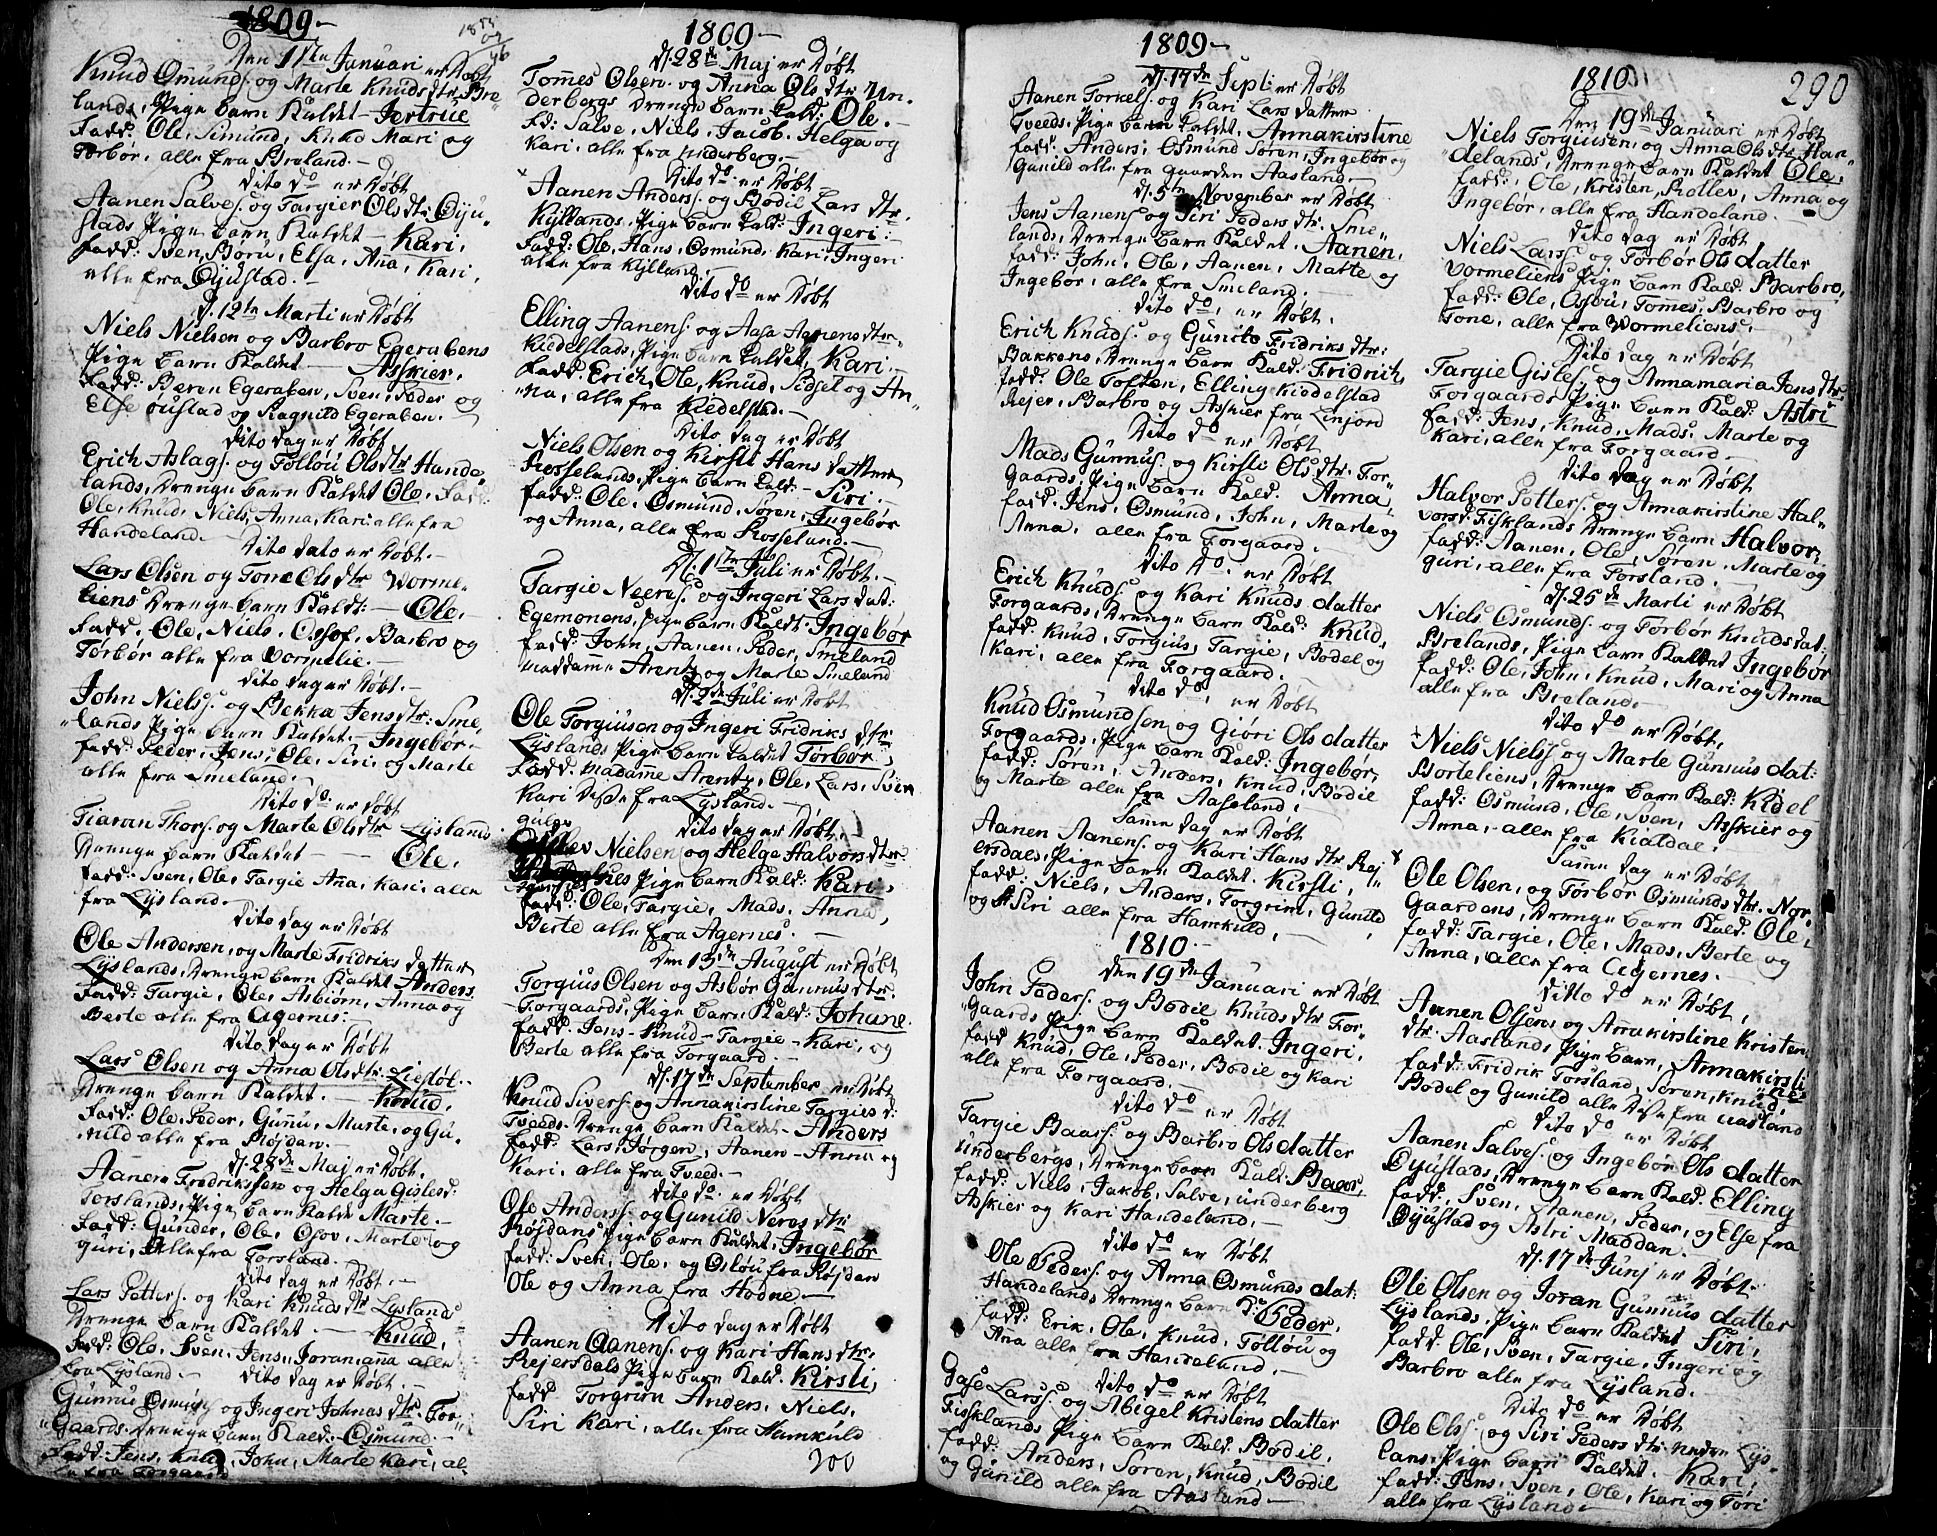 1809-
Den 17de Januari er Døbt
Knud Osmunds. og Marte Knuds dtr. Bre-
lands, Pige barn Kaldet - Jertrue
Fadd: Ole, Simund, Knud Mari og
Torbør, alle fra Breland.-
Dito do er Døbt
Aanen Salves. og Targier Ols dtr. Øyu-
stads Pige barn Kaldet - Kari,
fadd: Sven, Børu, Elsa, Aña, Kari,
alle fra Øyustad.-
d. 12te Marti er Døbt
Niels Nielsen og Barbro Egerabens
Pige barn Kaldet - Asskier.
Fadd: Beren Egeraben, Sven, Peder og
Else øiustad og Ragnild Egeraben.-
dito dag er Døbt
Erich Aslags. og Tollou Ols dtr Hande-
lands, Drenge barn Kaldet Ole. Fadd:
Ole, Knud, Niels, Anna, Kari alle fra
Handeland.-
Dito dato er Døbt.-
Lars Olsen og Tone Ols dtr Worme-
liens Drenge barn Kaldt - Ole.
Fadd. Ole, Niels, Ossof, Barbro og
Torbør alle fra Vormelie.-
dito dag er Døbt.-
John Niels. og Bekka Jens dtr: Sme-
lands Pige barn Kaldet - Ingebør.-
fadd: Peier, Jens, Ole, Siri, og Marte
alle fra Smeland.
Dito do er Døbt
Tiaran Thors. og Marte Ols dtr Lysland
Drenge barn Kaldet - Ole.
fadd: Sven, Ole, Targie Aña, Kari, alle
fra Lysland.
Dito dag er Døbt
Ole Andersen, og Marte Fridriks datter
Lyslands, Drenge barn Kaldet Anders
Fadd: Targie, Ole, Asbiørn, Anna og
Berte alle fra Agernes.-
dito dag er Døbt
Lars Olsen og Anna Ols dtr. Liestøl.
Drenge barn Kaldet.- Knud.
Fadd: Ole, Peder, Guñu, Marte, og Gu-
nild alle fra Røjdan.-
d. 28de Maj er Døbt.
Aanen Fredrikssen og Helga Gisles d:
Torslands, Pige barn Kaldt Marte.-
Fadd: Gunder, Ole, Osov, Marte og
guri, Alle fra Torsland.-
dito dag er Døbt.-
Lars Petters. og Kari Knuds dtr Lyslands
Drenge barn Kaldet - Knud.
Fadd: Ole, Sven, Jens, Joran, aña alle
fra Lysland.-
Dito dag er Døbt.-
Gunnu Osmuns. og Ingeri Johnas dtr. For-
gaards. Drenge barn Kald. Osmund.-
Fadd: Jens, Knud, John, Marte Kari, al-
le fra Forgaard
1809-
d. 28de Maj er Døbt
Tomes Olsen og Anna Ols dtr Un-
derbergs Drenge barn Kald: Ole.-
Fd: Salve, Niels, Jacob, Helga og
Kari, alle fra Underberg.-
Dito do. er Døbt
Aanen Anders. og Bodil Lars dtr.
Kyllands. Pige barn Kald: Ingeri.-
Fadd: Ole, Hans, Osmund, Kari, Ingeri
alle fra Kylland.-
Dito do er Døbt
Elling Aanens. og Aasa Aanens dtr.
Kiedelstads, Pige barn Kaldet, Kari.-
Fadd. Erich, Ole, Knud, Sidsel og An-
na, alle fra Kiedelstad.-
Dito dag er Døbt
Niels Olsen og Kirsti Hans datter
Rosselands, Pige barn Kald - Siri.-
fadd: Ole, Osmund, Søren, Ingebør
og Anna, alle fra Rosseland.-
D. 1te Juli er Døbt.-
Targie Neeres. og Ingeri Lars dat:
Egemonens, Pige barn Kaldt: Ingebør
fadd: John, Aanen, Peder, Smeland
maddame Arentz og Marte Smeland
D. 2de Juli er Døbt
Ole Torgiusen og Ingeri Fridriks dtr
Lyslands Pige barn Kaldet Torbør,
Fadd. Madamme Arentz, Ole, Lars, Sven
Kari disse fra Lysland.-
Dito dag er Døbt.-
Nielsen og Helge Halvors dtr.
Pige barn Kald: Kari,
fadd: Ole, Targie, Mads, Anna,
Berte alle fra Agernes.-
Den 13de August er Døbt
Torgius Olsen og Asbør Gunnus dtr.
Forgaards, Pige barn Kald: Johane.
fadd: Jens - Knud - Targie - Kari, og
Berte alle fra Forgaard.-
D. 17de September er Døbt
Knud Sivers. og Annakirstine Targies d:
Tveeds Drenge barn Kaldet - Anders
fadd: Lars, Jørgen, Aanen - Anna og
Kari, alle fra Tveed.-
Dito do. er Døbt
Ole Anders. og Gunild Neres dtr
Røjdans Pige barn Kaldet, Ingebør
fadd: Sven, Ole, og Oslou fra Røjdan
Ole og Anna fra Hodne.-
Dito dag er Døbt
Aanen Aanens. og Kari Hans dtr.
Rejersdals Pige barn Kald, Kirsti,
fadd Torgrim Anders, Niels.
Siri Kari, alle fra Hamkuld
200
1809-
d. 17de Sept: er Døbt
Aanen Torkels. og Kari Lars datter
Tveeds, Pige barn Kaldet, Annakirstine
fadd: Anders, Osmund Søren, Ingebør og
Gunild alle fra gaarden Aasland.-
d. 5te November er Døbt
Jens Aanens og Siri Peders dtr. Sme-
lands, Drenge barn Kaldet. Aanen,
fadd: John, Ole, Aanen, Marte og
Ingebør, alle fra Smeland.-
Dito do, er Døbt.
Erich Knuds. og Gunito Fridriks dtr:
Bakkens, Drenge barn Kald. Fridrich,
fadd: Ole Tolten, Elling Kiddelstad
Rejer, Barbro og Asskier fra Linjord
Dito do er Døbt
Mads Gunnus. og Kirsti Ols dtr. For-
gaards, Pige barn Kald. Anna,
fadd: Jens, Osmund, John, Marte og
Anna, alle fra Forgaard.-
Dito do. er Døbt
Erich Knuds. og Kari Knuds datter
Forgaards, Drenge barn Kald: Knud,
fadd: Knud, Torgius, Targie, Bodel og
Kari, alle fra Forgaard.-
dito do, er Døbt
Knud Osmundsen og Giøri Ols datter
Forgaards, Pige barn Kald: Ingebør,
fadd: Søren, Anders, Knud, Bodil
og Marte alle fra Aasland.
Same dag er Døbt
Aanen Aanens. og Kari Hans dtr Rej-
ersdals, Pige barn Kaldet. Kirsti,
fadd: Niels, Anders, Torgrim, Gunild
og Siri alle fra Hamkuld.
1810.-
den 19de Januari er Døbt
John Peders. og Bodil Knuds dtr For-
gaards Pige barn Kaldet. Ingeri.
fadd Knud, Ole, Peder, Bodil og Kari
alle fra Forgaard.-
Dito do er Døbt
Targie Baars. og Barbro Ols datter
Underbergs, Drenge barn Kald. Baar,
fadd: Niels, Jakob, Salve, underberg
Asskier og Kari Handeland.-
dito do er Døbt
Ole Peders. og Anna Osmunds dat:
Handelands Drenge barn K: Peder.
fadd: Erik, Ole, Knud, Tolløu og
Ana alle fra Handeland.-
Dito do er Døbt
Gase Larss. og Abigel Kristens datter
Fisklands Pige barn Kald. Bodil.
fadd: Anders, Søren, Knud, Bodil
og Gunild alle fra Aasland.-
1810 290
Den 19de Januari er Døbt
Niels Torgiusen, og Anna Ols dtr Han-
delands, Drenge barn Kaldet Ole.
fadd:, Ole, Kristen, Rollev, Anna og
Ingebør, alle fra Handeland.
Dito dag er Døbt
Niels Lars. og Torbør Ols datter
Vormeliens Pige barn Kald. Barbro,
fadd: Ole, Asbøu, Tomes, Barbro og
Tone, alle fra Vormeliens,
Dito dag er Døbt
Targie Gisles, og Annamaria Jens dtr.
Forgaards Pige barn Kald: Astri
Fadd: Jens, Knud, Mads, Marte og
Kari, alle fra Forgaard.-
Dito dag er Døbt
Halvor Petters. og Annakirstine Hal-
vorsd: Fisklands Drenge barn Halvor,
fadd: Aanen, Ole, Søren, Marte og
guri, alle fra Torsland.-
D. 25de Marti er Døbt
Niels Osmunds. og Torbør Knuds dat:
Brelands, Pige barn Kaldet Ingebør
fadd: Ole, John, Knud, Mari og Anna
alle fra Breland.-
Dito do er Døbt,
Niels Niels og Marte Gunnus dat:
Borteliens, Drenge barn Kald: Kidel
fadd: Osmund, Ole, Sven, Asskier og
Anna, alle fra Kialdal.
Same dag er Døbt
Ole Olsen, og Torbør Osmunds dtr. Nor-
gaardens, Drenge barn Kald: Ole,
fadd: Targie, Ole, Mads, Berte og
Anna, alle fra Agernes.-
Ditto do er Døbt,
Aanen Olsens og Añakirstine Kristen
dtr. Aaslands Pige barn, Annakirsti
ne
fadd: Fridrik Torsland, Søren, Knud,
Bodel og Gunild alle disse fra aasland
Dito do er Døbt
Aanen Salves. og Ingebør Ols datter
Øyustads, Drenge barn Kald. Elling
fadd: Sven, Aanen, Peder, og Else fra
Øyustad og Astri Maddan.-
D. 17de Junj er Døbt.
Ole Olsen og Joran Gunnus datter
Lyslands, Pige barn Kaldet Siri,
fadd: Ole, Sven, Targie, Ingeri og
Barbro alle fra Lysland.-
Dito do er Døbt
Ole Ols. og Siri Peders dtr. neden Lys-
lans, Pige barn Kaldet. Kari,
fadd: Jens, Sven, Ole, Kari og Tori
alle fra Lysland.-